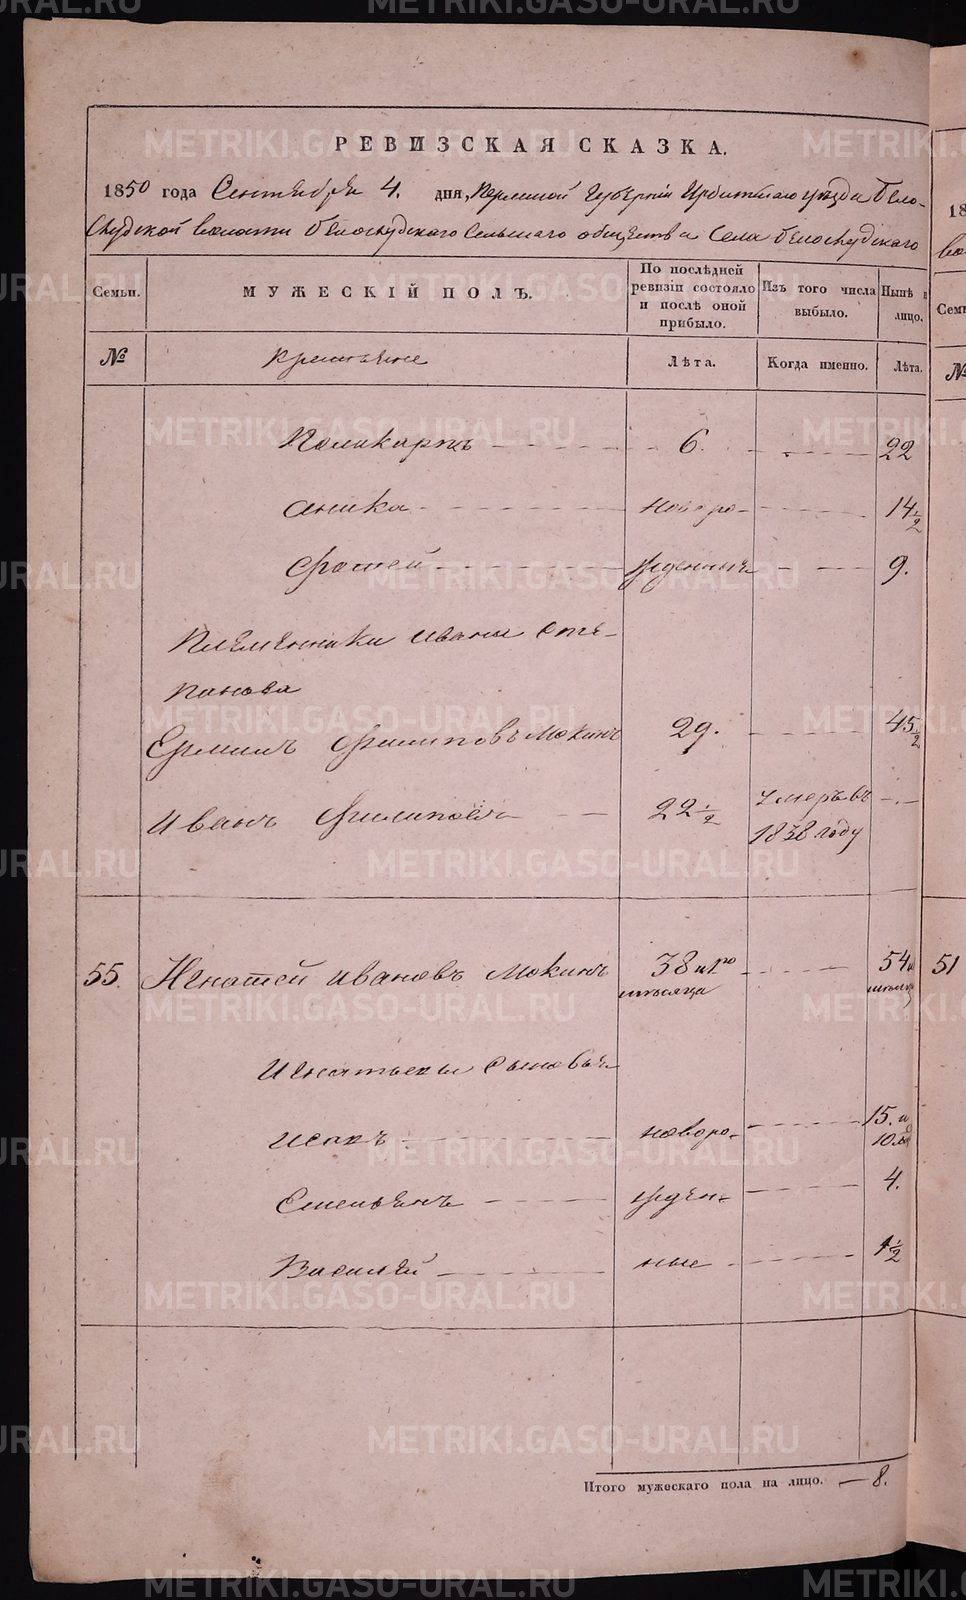 РЕВИЗСКАЯ СКАЗКА.
1850 года Сентября 4. дня, Пермской Губерніи Ирбитскаго уезда Бело-
слудской волости Белослудскаго Сельскаго общества Села Белослудскаго
Семьи. МУЖЕСКІЙ ПОЛЪ. По послѣдней ревизіи состояло и послѣ оной прибыло. Изъ того числа выбыло. Нынѣ лицо.
№ крестьяне Лѣта. Когда именно. Лѣта.
Поликарпъ 6. 22
Аника новоро- 14 1/2
Фотей жденныя 9.
Племянники Ивана Сте-
панова
Ермилъ Филиповъ Мокинъ 29. 45 1/2
Иванъ Филиповъ 22 1/2 умеръ въ
1838 году
55. Игнатей Ивановъ Мокинъ 38 и 54 и
месяца
Игнатьевы Сыновья
Исакъ новоро- 15. и
10.
Емельянъ жден- 4.
Василей ные 1 1/2
Итого мужескаго пола на лицо. — 8.
18
Семь
№
51
METRIKI.GASO-URAL.RU